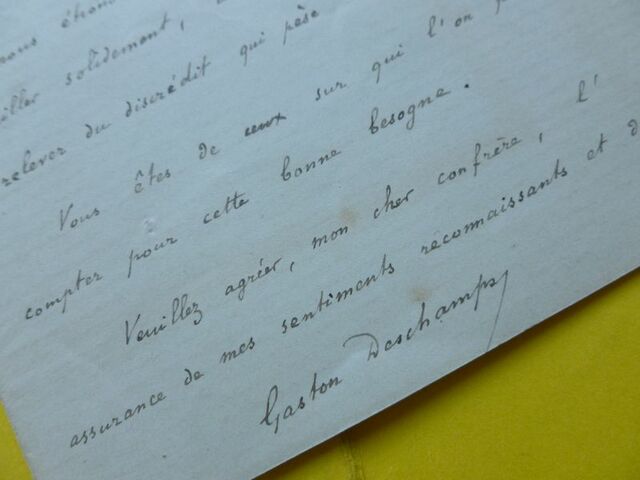 nous
solidement,
relever du discrédit qui pèse
Vous êtes de ceux sur qui l'on
compter pour cette bonne besogne.
Veuillez agréer, mon cher confrère, l'
assurance de mes sentiments reconnaissants et d
Gaston Deschamps